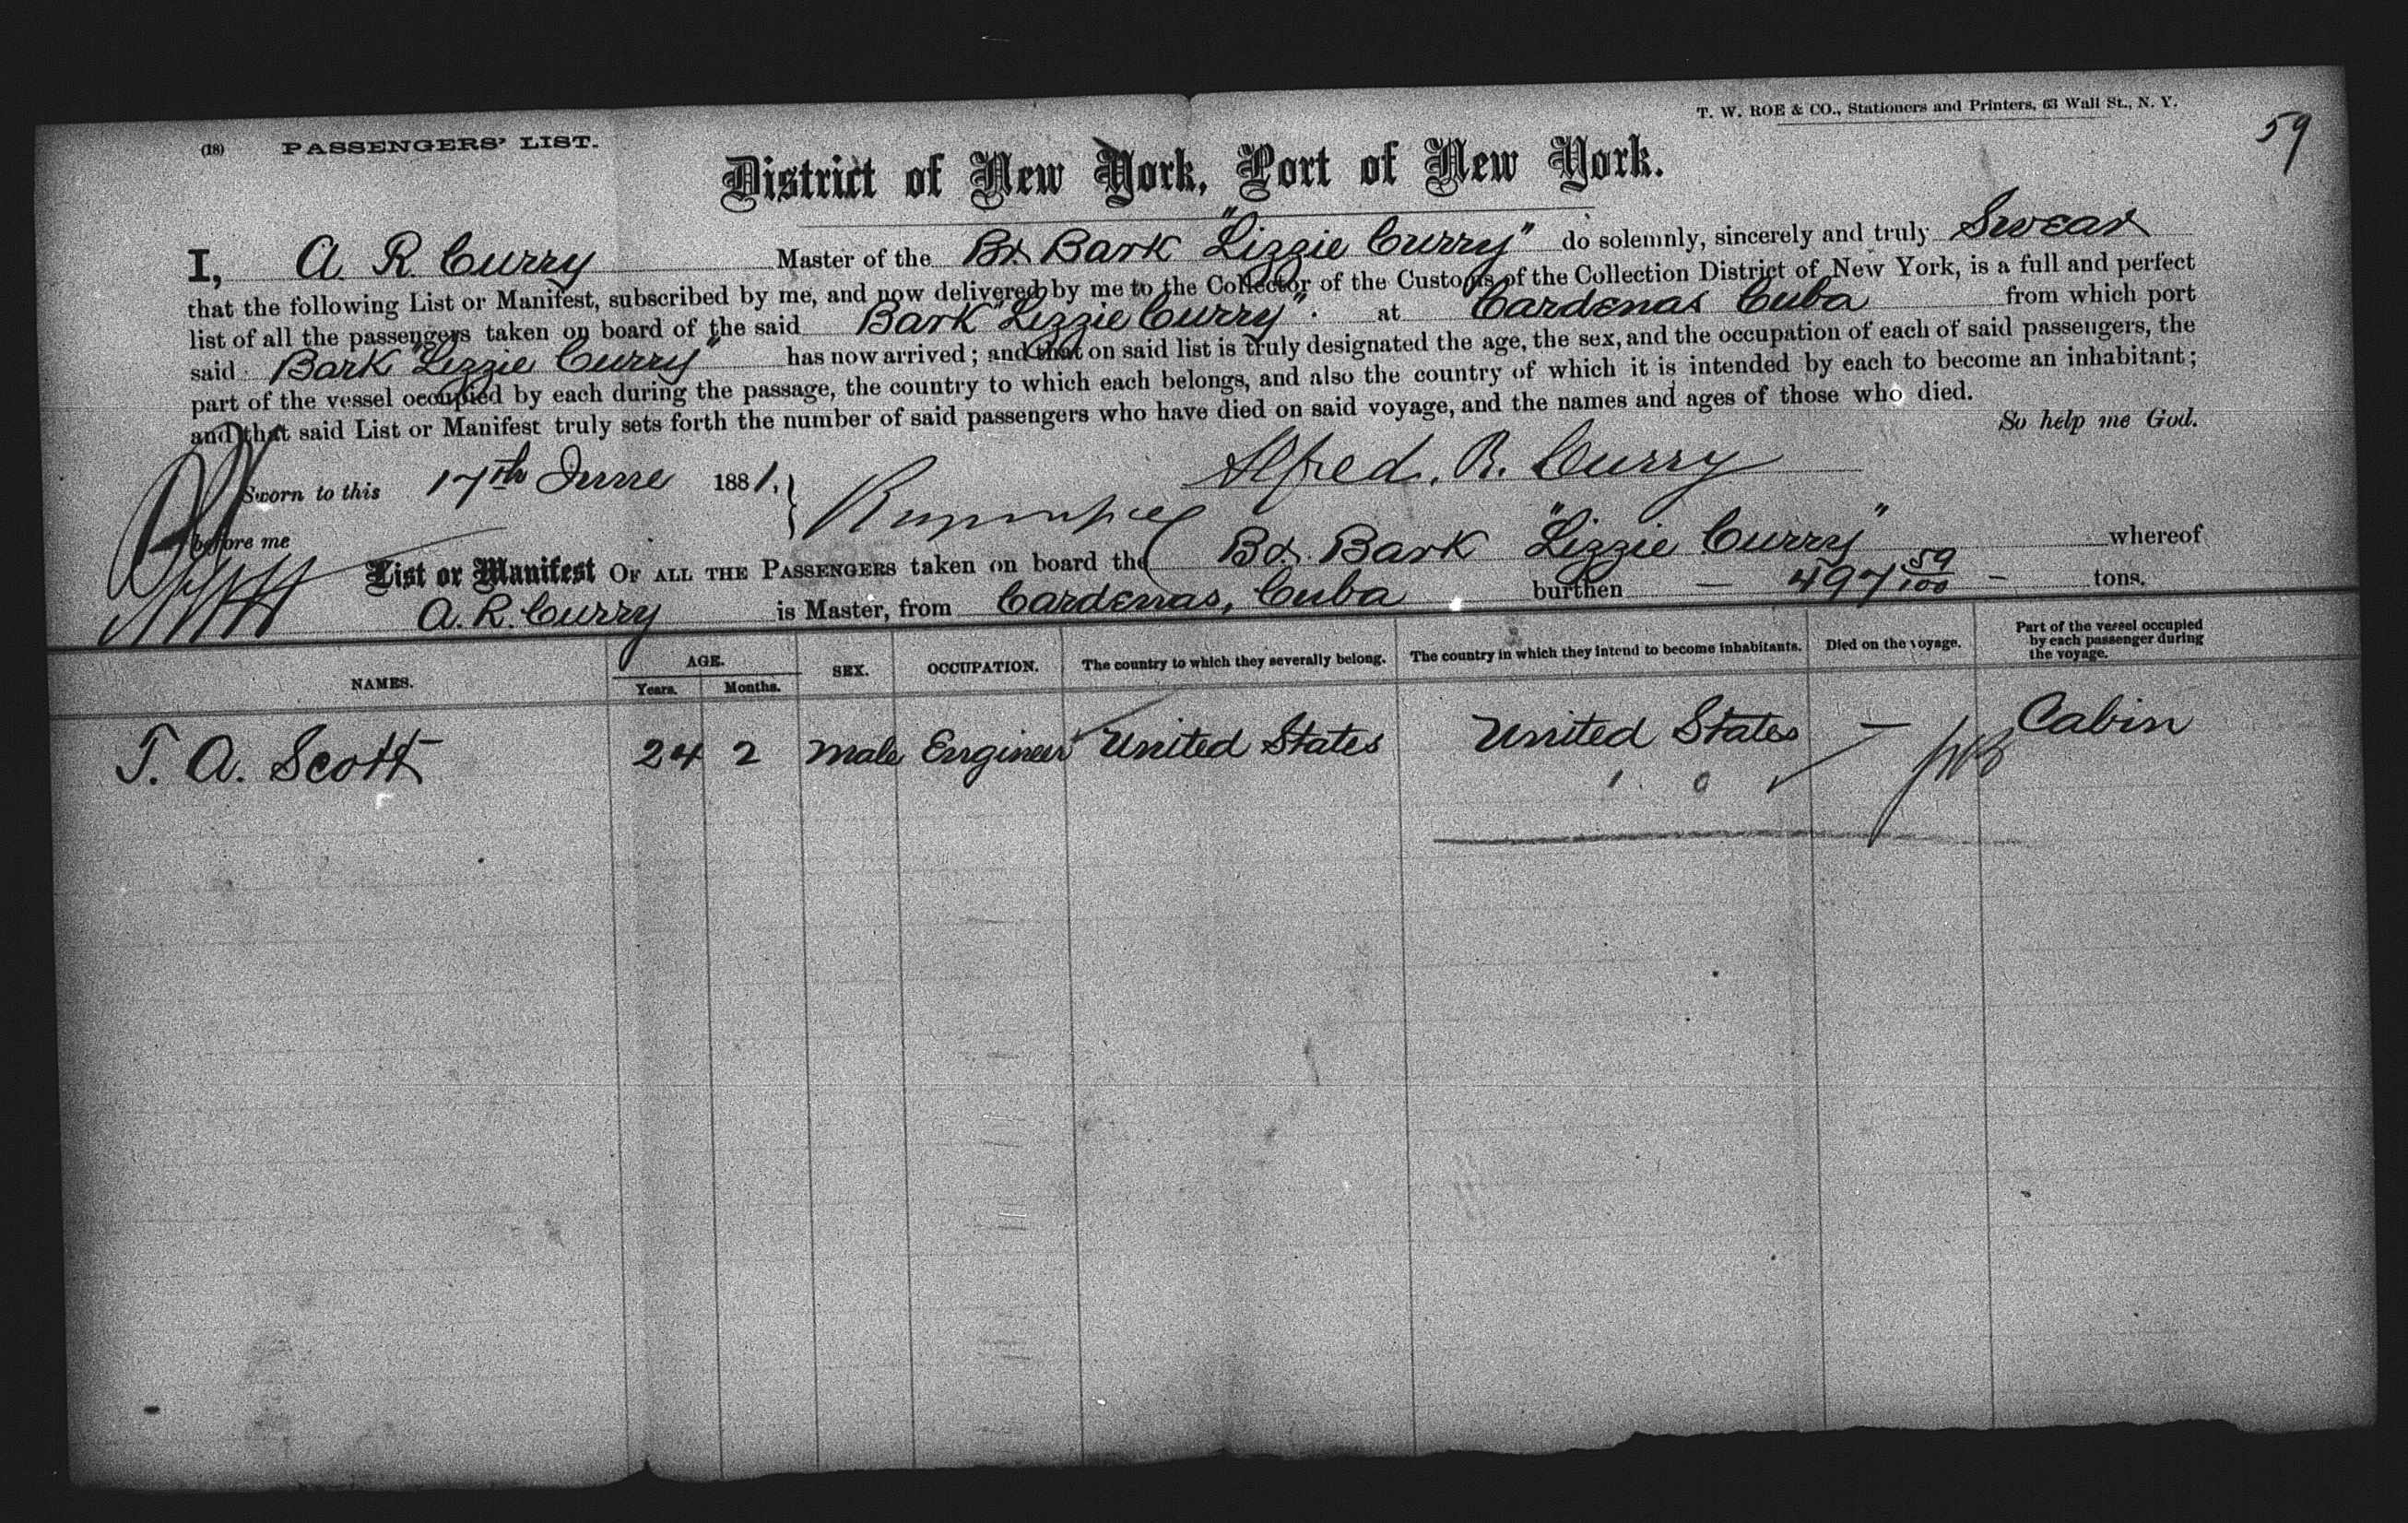 T. W. ROE & CO., Stationers and Printers, 63 Wall St., N. Y.
59
(18) PASSENGERS' LIST.
District of New York, Port of New York.
I, A R Curry Master of the Br Bark "Lizzie Curry" do solemnly, sincerely and truly Swear
that the following List or Manifest, subscribed by me, and now delivered by me to the Collector of the Customs of the Collection District of New York, is a full and perfect
list of all the passengers taken on board of the said Bark "Lizzie Curry" at Cardenas Cuba from which port
said Bark "Lizzie Curry" has now arrived; and that on said list is truly designated the age, the sex, and the occupation of each of said passengers, the
part of the vessel occupied by each during the passage, the country to which each belongs, and also the country of which it is intended by each to become an inhabitant;
and that said List or Manifest truly sets forth the number of said passengers who have died on said voyage, and the names and ages of those who died.
So help me God.
Sworn to this 17th June 1881, Alfred. R. Curry
before me
List or Manifest OF ALL THE PASSENGERS taken on board the Br. Bark "Lizzie Curry" whereof
A. R. Curry is Master, from Cardenas, Cuba burthen — 497 59/100 — tons.
NAMES. AGE. Years. Months. SEX. OCCUPATION. The country to which they severally belong. The country in which they intend to become inhabitants. Died on the voyage. Part of the vessel occupied by each passenger during the voyage.
T. A. Scott 24 2 Male Engineer United States United States — Cabin